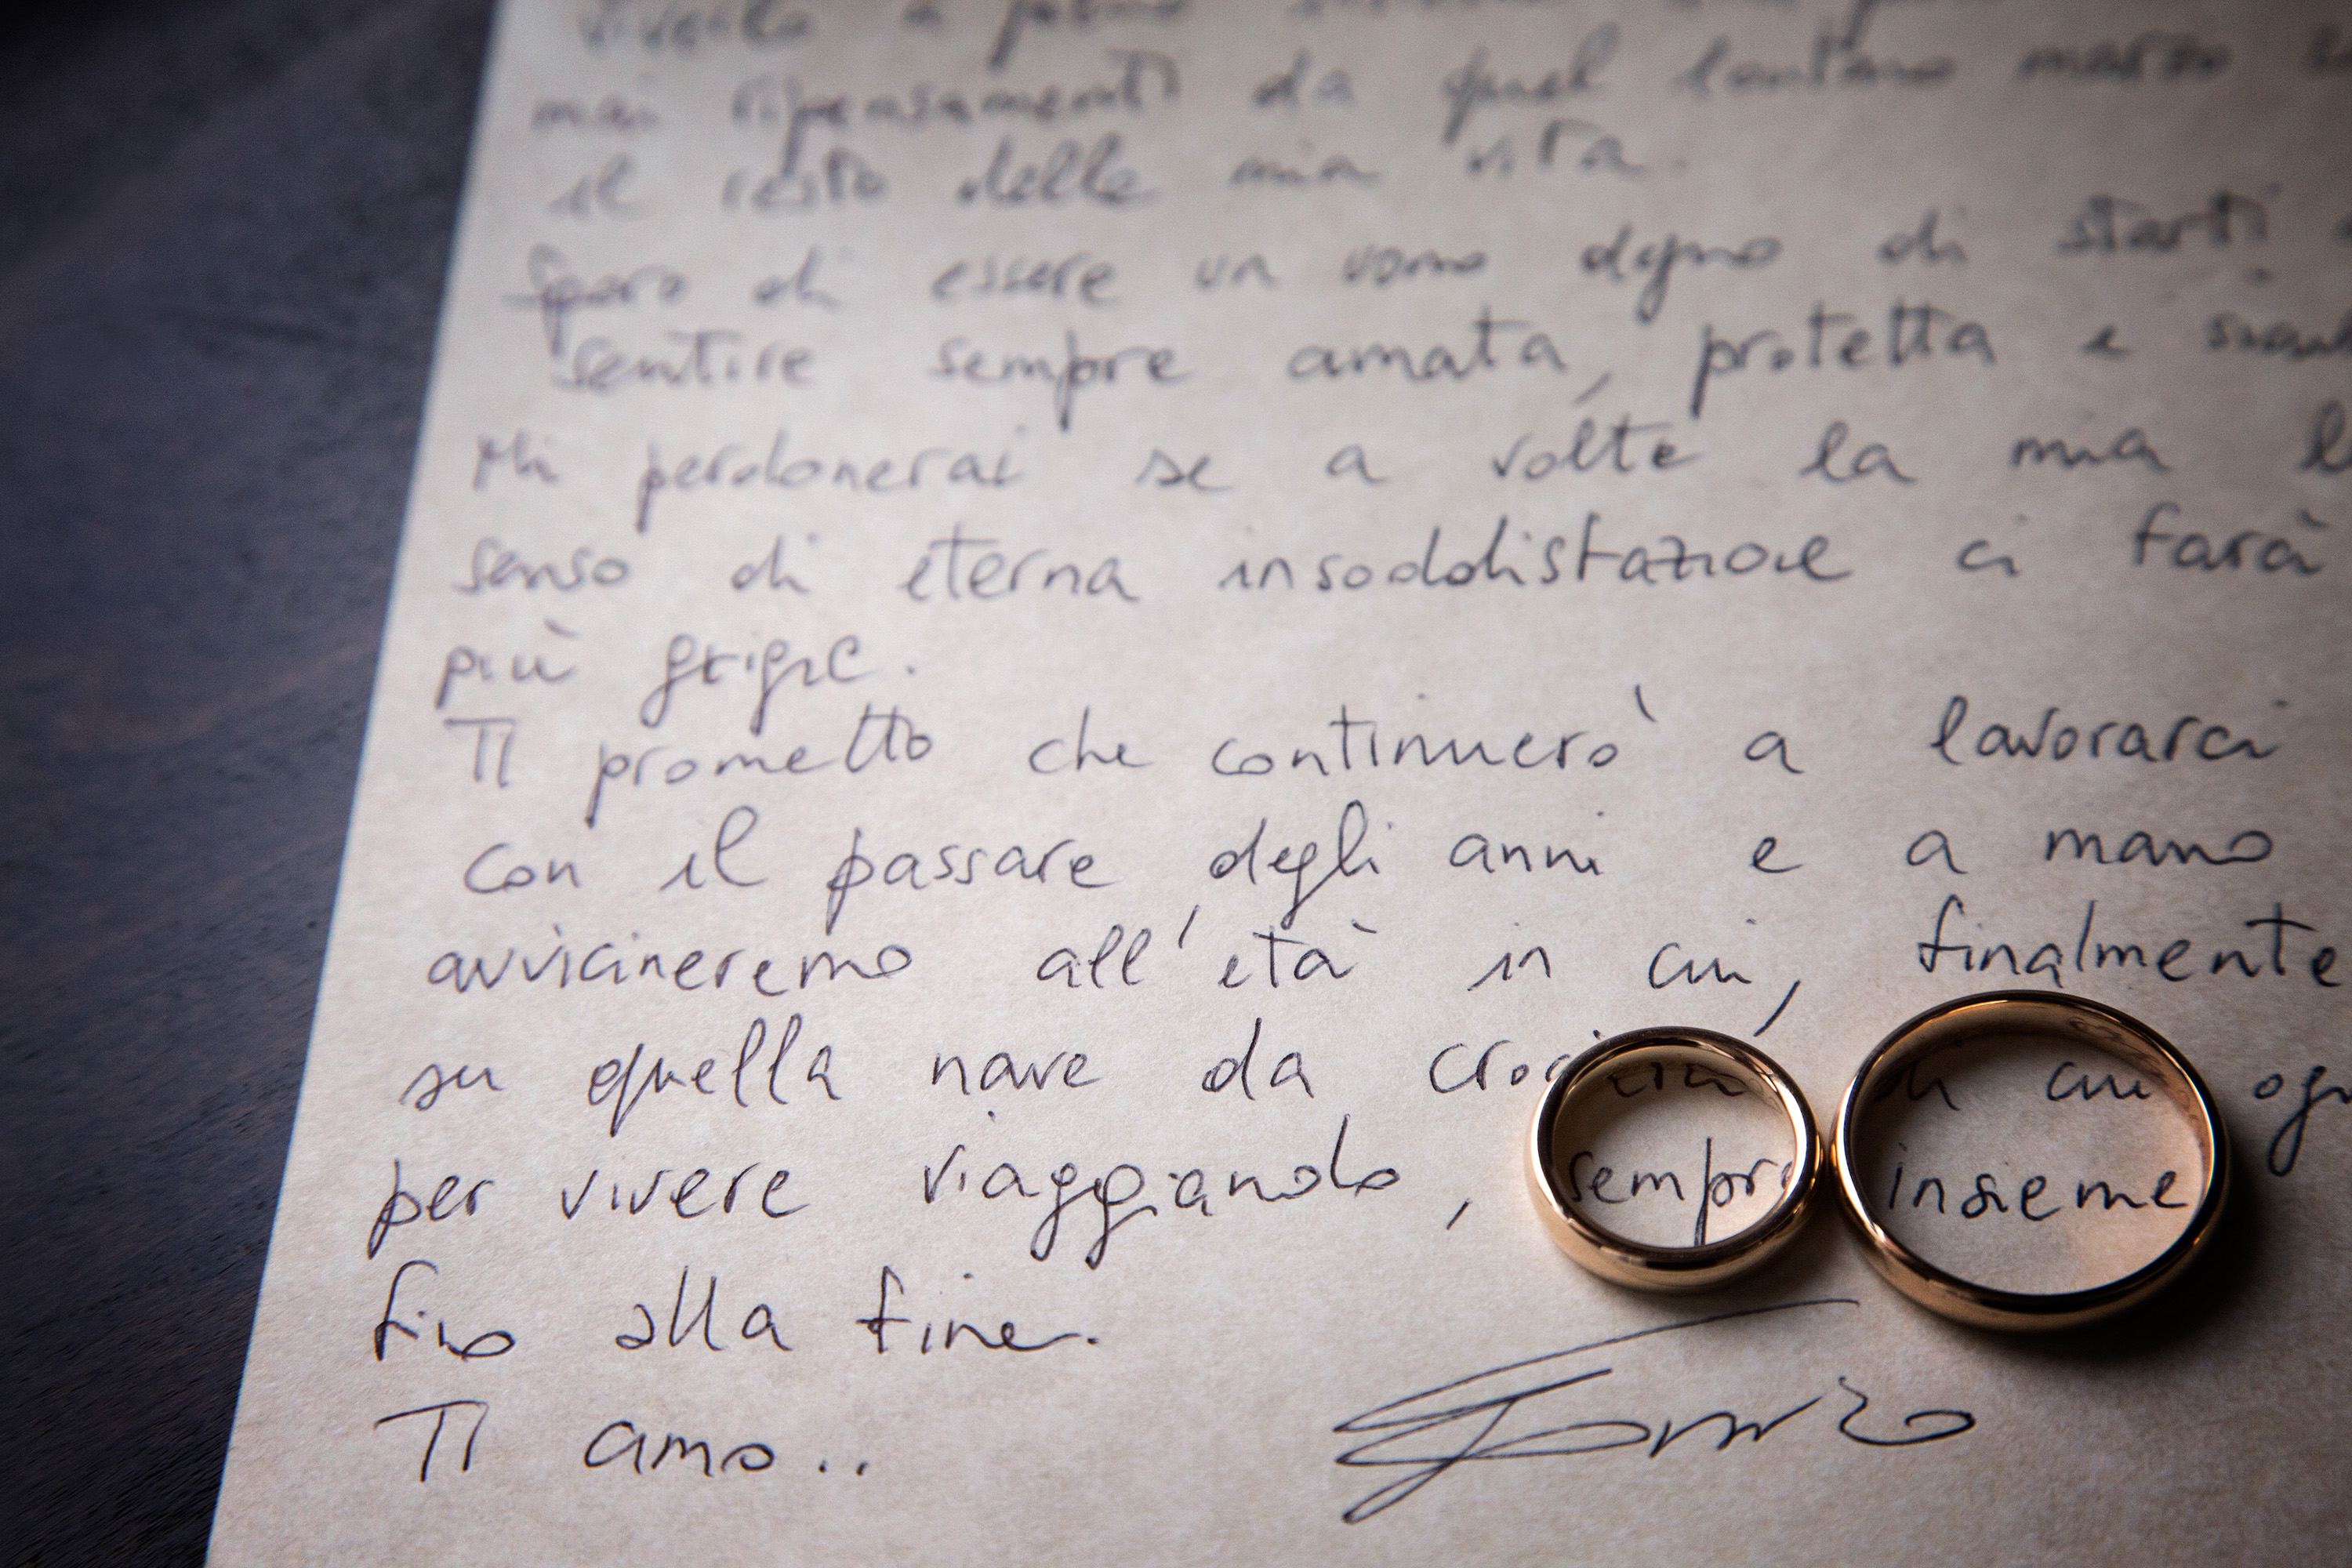 viverlo a pieno
mai ripensamenti da quel lontano marzo
il resto della mia vita.
Spero di essere un uomo degno di starti
sentire sempre amata, protetta e
Mi perdonerai se a volte la mia
senso di eterna insoddisfazione ci farà
più grigie.
Ti prometto che continuerò a lavorarci
con il passare degli anni e a mano
avvicineremo all'età in cui, finalmente
su quella nave da crociera di cui
per vivere viaggiando, sempre insieme
fino alla fine.
Ti amo..